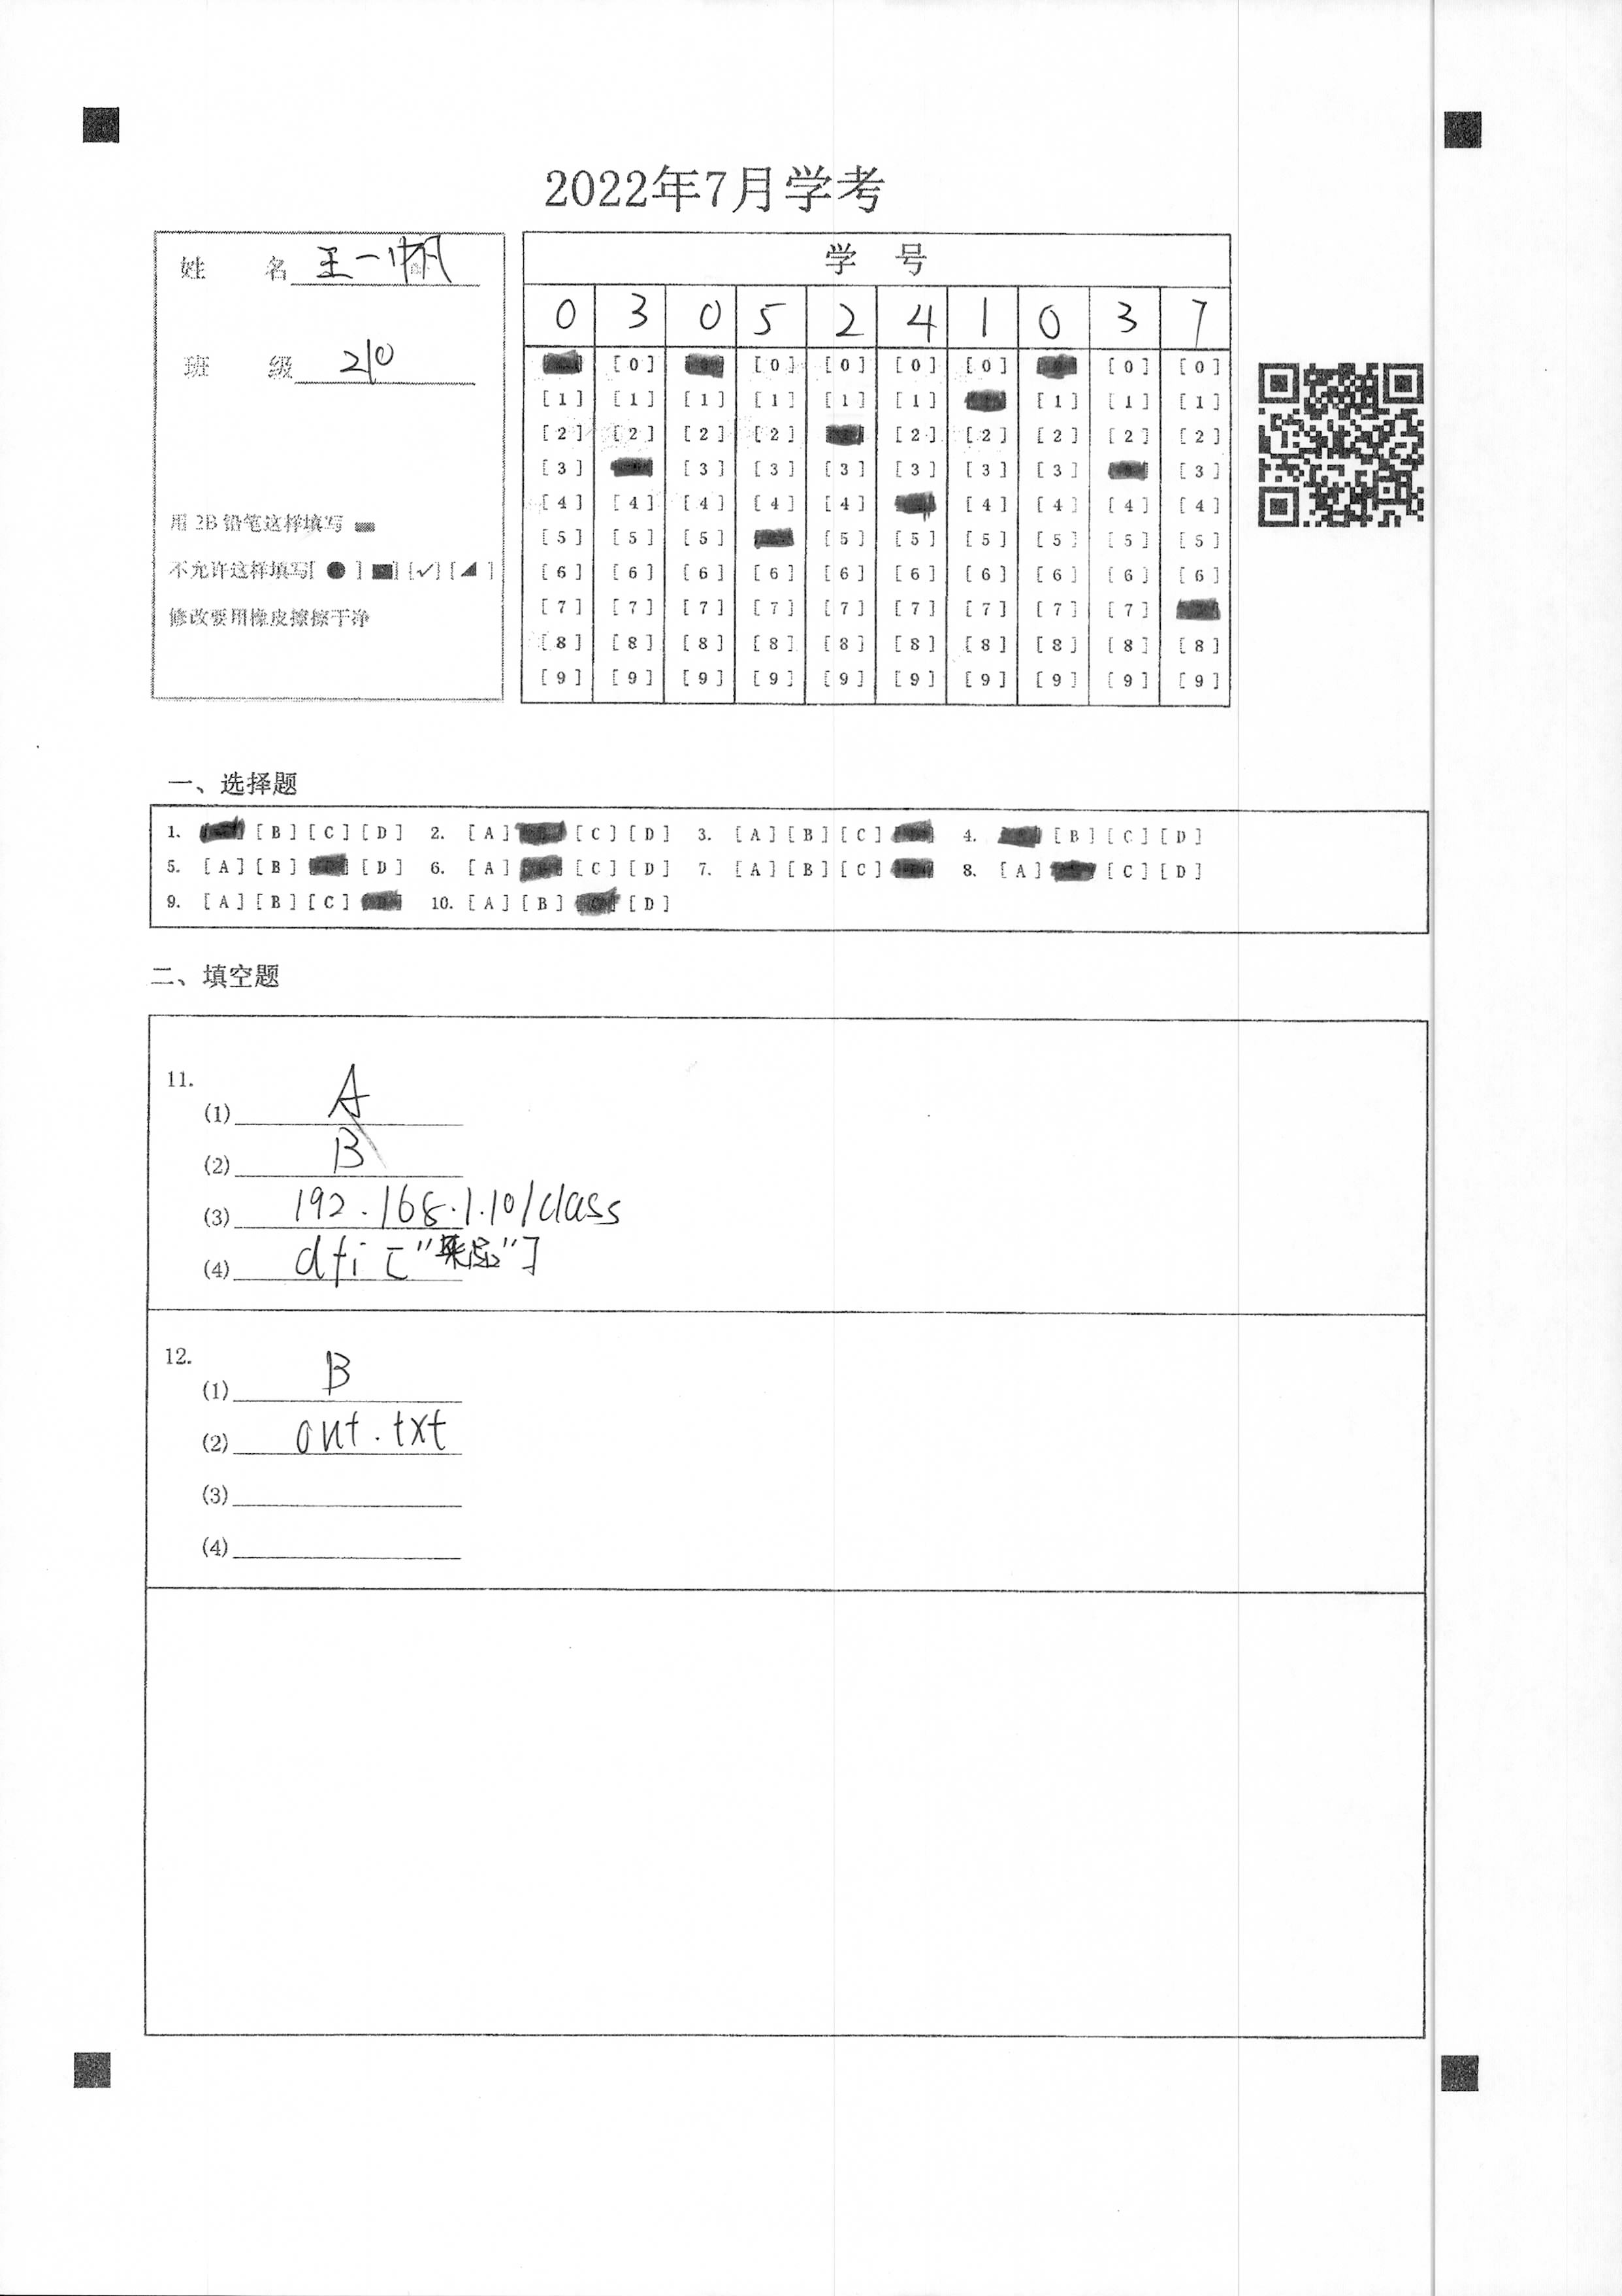 2022年7月学考
姓 名 王一帆
班 级 210
用 2B 铅笔这样填写
不允许这样填写[ ● ] [■] [✓] [◢ ]
修改要用橡皮擦擦干净
学 号
0 3 0 5 2 4 1 0 3 7
[0] [0] [0] [0] [0] [0]
[1] [1] [1] [1] [1] [1] [1] [1] [1]
[2] [2] [2] [2] [2] [2] [2] [2] [2]
[3] [3] [3] [3] [3] [3] [3] [3]
[4] [4] [4] [4] [4] [4] [4] [4] [4]
[5] [5] [5] [5] [5] [5] [5] [5] [5]
[6] [6] [6] [6] [6] [6] [6] [6] [6] [6]
[7] [7] [7] [7] [7] [7] [7] [7] [7]
[8] [8] [8] [8] [8] [8] [8] [8] [8] [8]
[9] [9] [9] [9] [9] [9] [9] [9] [9] [9]
一、选择题
1. [B] [C] [D] 2. [A] [C] [D] 3. [A] [B] [C] 4. [B] [C] [D]
5. [A] [B] [D] 6. [A] [C] [D] 7. [A] [B] [C] 8. [A] [C] [D]
9. [A] [B] [C] 10. [A] [B] [D]
二、填空题
11.
(1) A
(2) B
(3) 192.168.1.10/class
(4) dfi["]
12.
(1) B
(2) out.txt
(3)
(4)